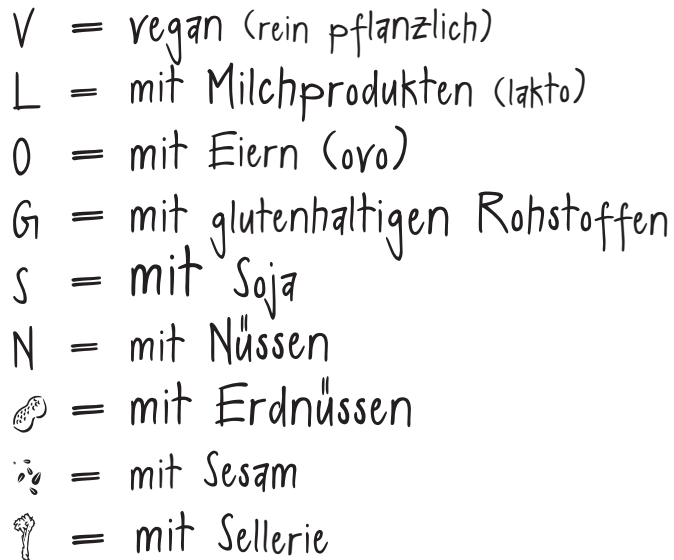 V = vegan (rein pflanzlich)
L = mit Milchprodukten (lakto)
O = mit Eiern (ovo)
G = mit glutenhaltigen Rohstoffen
S = mit Soja
N = mit Nüssen
= mit Erdnüssen
= mit Sesam
= mit Sellerie